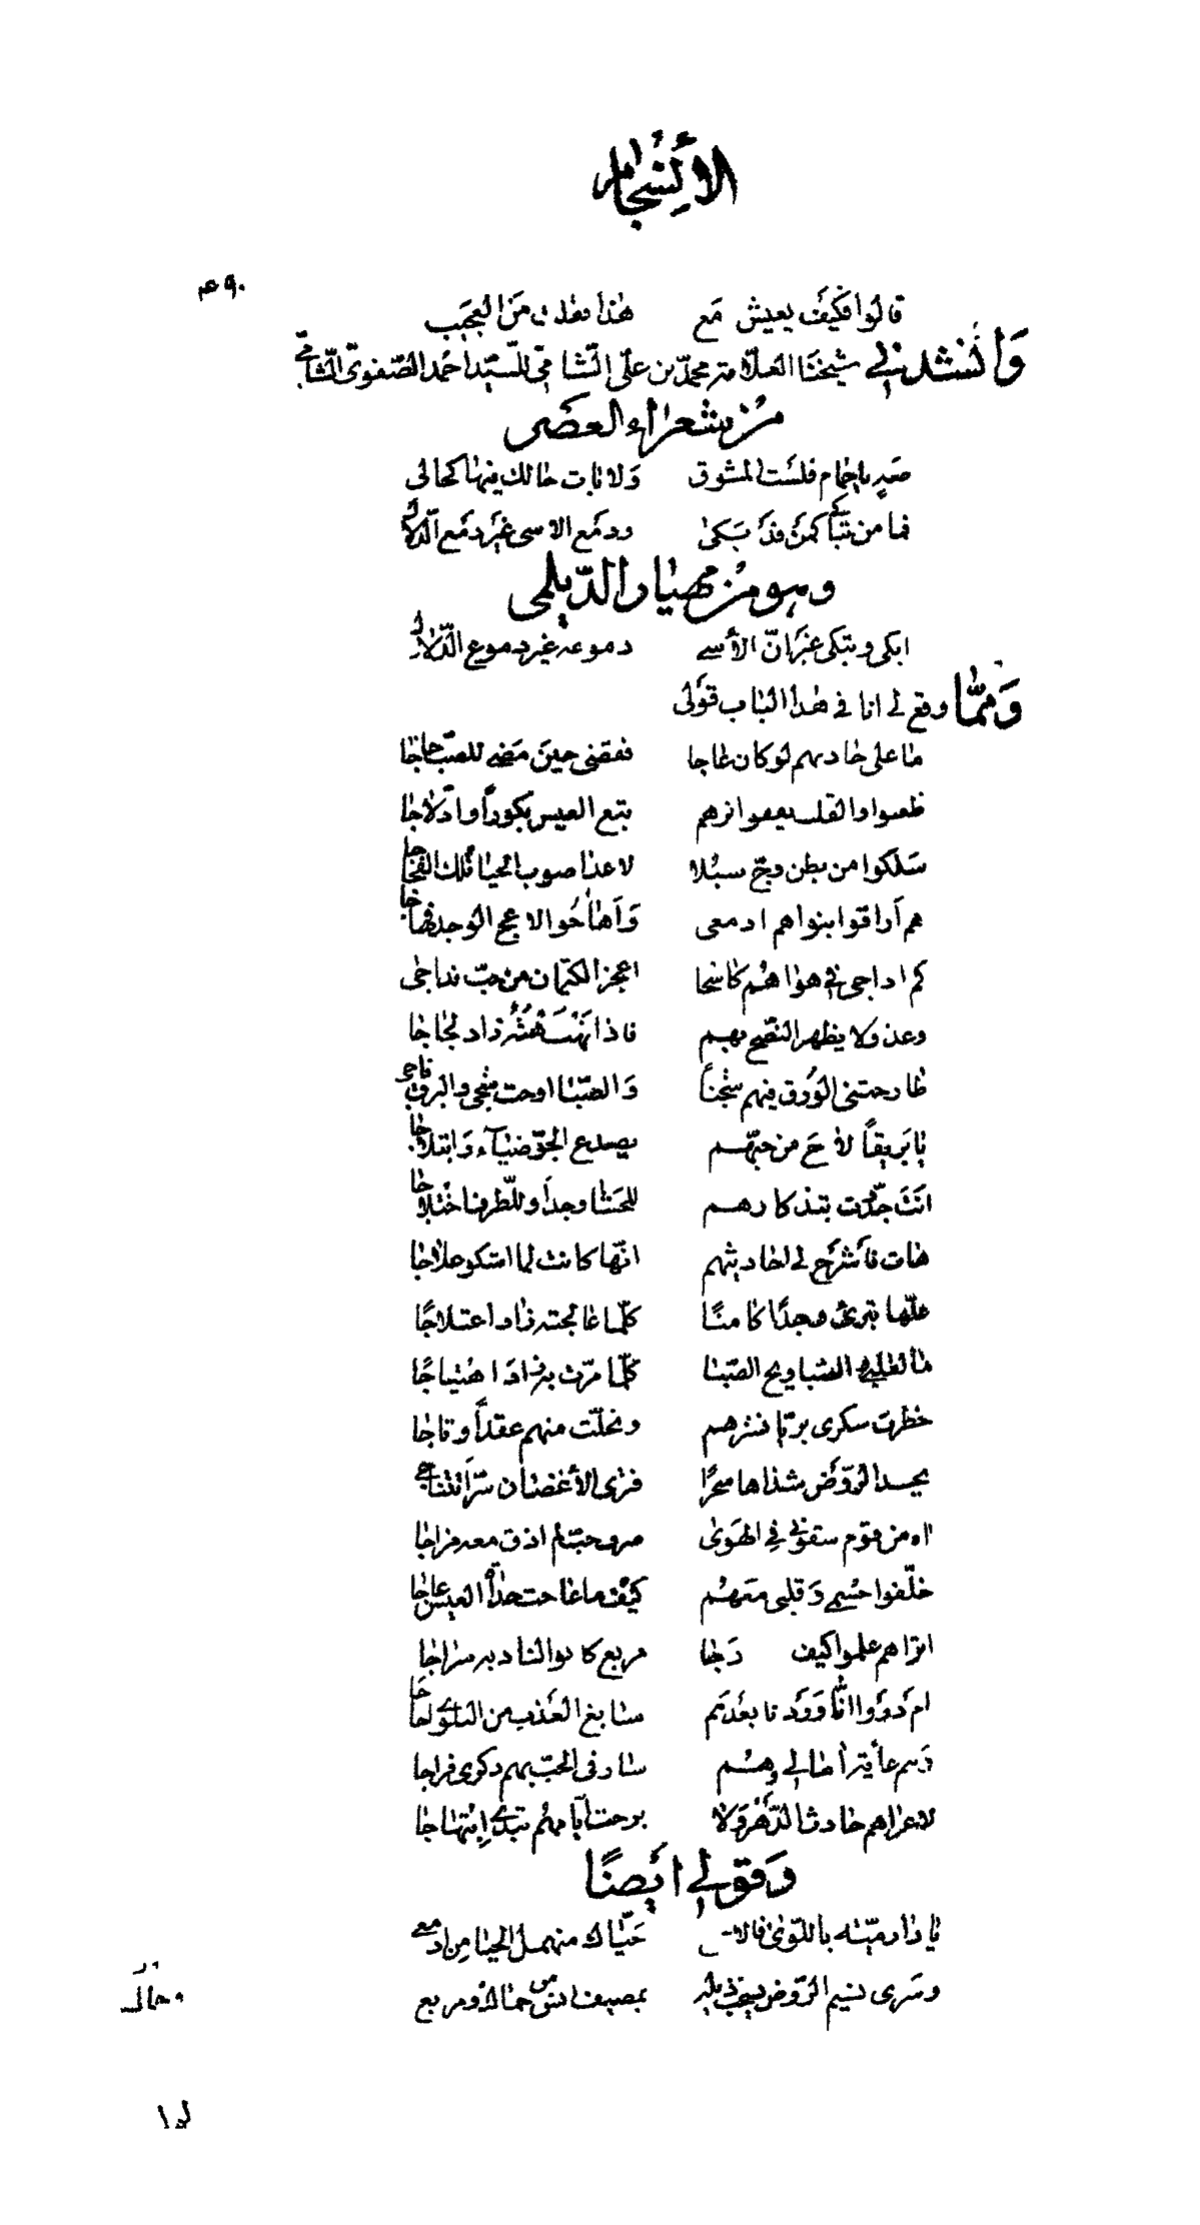 الأنسجام
۴۹۰
قالوا فكيف يعيش مع هذا فقلت من العجب
وأنشدني شيخنا العلامة محمد بن علي الشامي للسيد احمد الصفوي الشامي
من شعراء العصر
صه يا حمام فلست المشوق ولا بات حالك فيها كحالي
فما من تباكى كمن قد بكى ودمع الاسى غير دمع الدلال
وهو من مهيار الديلمي
ابكي وتبكي غير انّ الأسى دموعه غير دموع الدّلال
وممّا وقع لي انا في هذا الباب قولي
ما على حاديهم لو كان عاجا فقضى حين مضى للصبّ حاجا
ظعنوا والقلب يقفو اثرهم يتبع العيس بكوراً وادّلاجا
سلكوا من بطن وجّ سبلا لا عدا صوب الحيا تلك الفجاجا
هم أراقوا بنواهم ادمعي وأهاجوا لاعج الوجد فهاجا
كم اداجي في هواهم كاشحا اعجز الكتمان من حبّ فداجى
وعذولا يظهر النصح بهم فاذا نهنهته زاد لجاجا
طارحتني الورق فيهم شجناً والصّبا اوحت شجى والبرق ناجى
يا بريقاً لاح من حيّهم يصدع الجوّ ضياء وابتلاجا
انت جدّدت بتذكارهم للحشا وجداً وللطّرف اختلاجا
هات فاشرح لي احاديثهم انّها كانت لما اشكو علاجا
علّها تبرئ وجدًا كامنًا كلّما عالجته زاد اعتلاجًا
ما لقلبي والصّبا ويح الصّبا كلّما مرّت به زاد اهتياجًا
خطرت سكرى بريّا نشرهم وتحلّت منهم عقداً وتاجا
يحسد الرّوض شذاها سحرًا فترى الأغصان سرّا تتناجى
اه من قوم سقوني في الهوى صرف حبّ لم اذق معه مزاجا
خلّفوا جسمي وقلبي معهم كيفما عاجت حداة العيس عاجا
اتراهم علموا كيف دجا مربع كانوا لناديه سراجا
ام دروا انّا وردنا بعدهم سائغ العذب من السلوى اجاجا
لا عراهم حادث الدّهر ولا برحت ايّامهم تبدي ابتهاجا
وقولي ايضًا
يا دار ميّة باللّوى فالاجرع حيّاك منهمل الحيا من ادمعي
وسرى نسيم الرّوض يسحب ذيله بمصيف انس من حماك ومربع